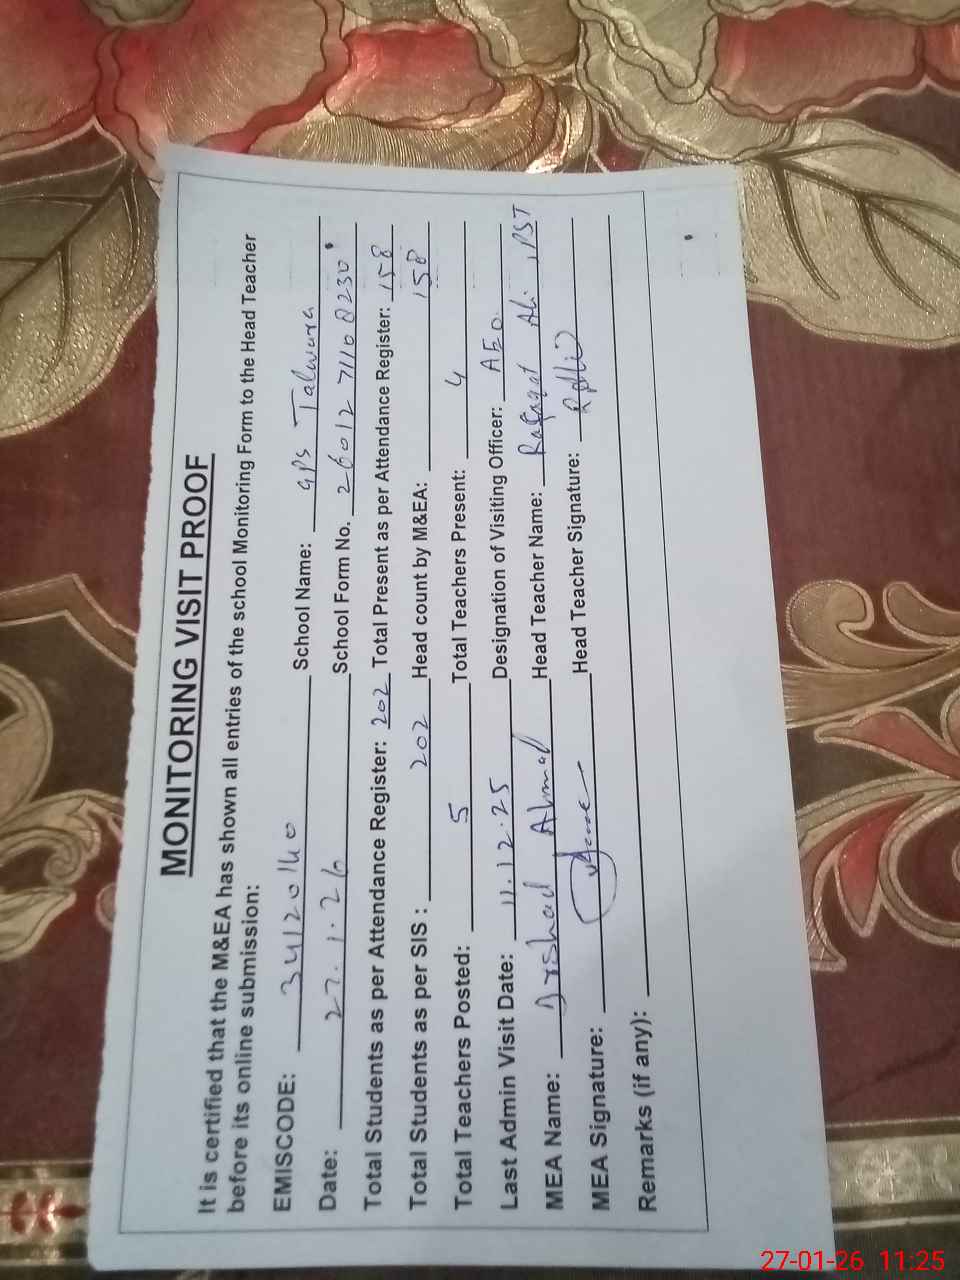 MONITORING VISIT PROOF
It is certified that the M&EA has shown all entries of the school Monitoring Form to the Head Teacher
before its online submission:
EMISCODE: 34120140 School Name: GPS Talwara
Date: 27.1.26 School Form No. 2601271108230
Total Students as per Attendance Register: 202 Total Present as per Attendance Register: 158
Total Students as per SIS : 202 Head count by M&EA: 158
Total Teachers Posted: 5 Total Teachers Present: 4
Last Admin Visit Date: 11.12.25 Designation of Visiting Officer: AEO
MEA Name: Arshad Ahmad Head Teacher Name: Rafaqat Ali , PST
MEA Signature: Head Teacher Signature:
Remarks (if any):
27-01-26 11:25